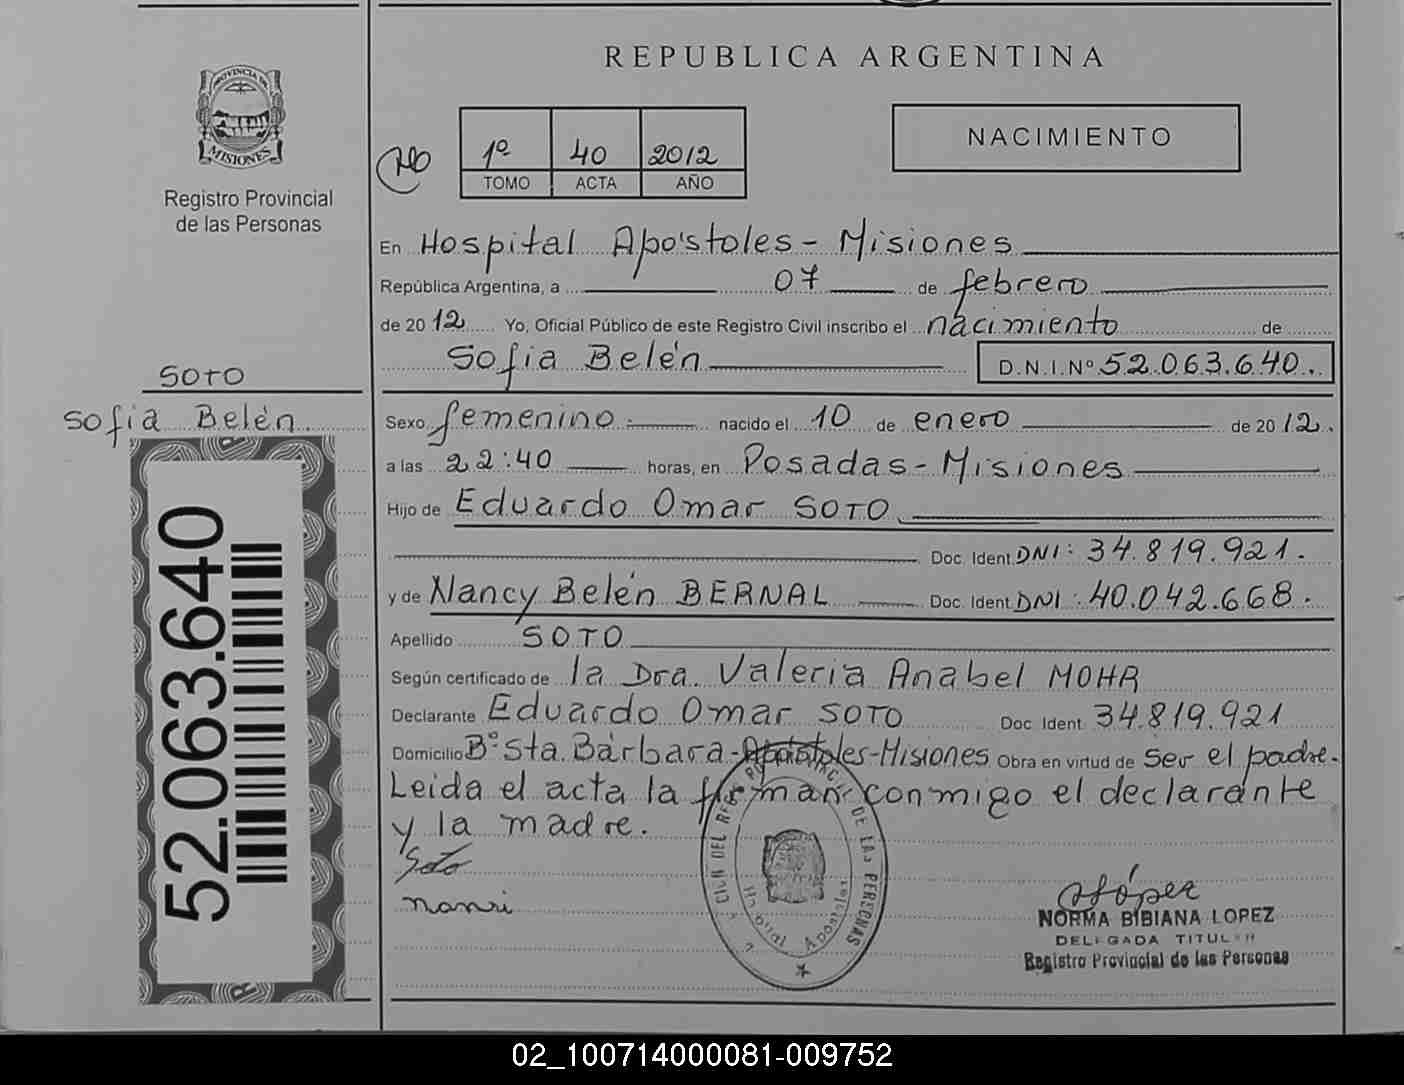 REPUBLICA ARGENTINA
PROVINCIA DE
MISIONES
Registro Provincial
de las Personas
1º 40 2012
TOMO ACTA AÑO
NACIMIENTO
En Hospital Apóstoles - Misiones
República Argentina, a 07 de febrero
de 2012 Yo, Oficial Público de este Registro Civil inscribo el nacimiento de
Sofia Belén D.N.I.Nº 52.063.640.
SOTO
Sofia Belén
Sexo femenino nacido el 10 de enero de 2012.
a las 22:40 horas, en Posadas - Misiones
Hijo de Eduardo Omar SOTO
Doc. Ident. DNI: 34.819.921.
y de Nancy Belén BERNAL Doc. Ident. DNI: 40.042.668.
Apellido SOTO
Según certificado de la Dra. Valeria Anabel MOHR
Declarante Eduardo Omar SOTO Doc Ident. 34.819.921
Domicilio Bº Sta. Bárbara - Apóstoles - Misiones Obra en virtud de ser el padre.
Leida el acta la firman conmigo el declarante
y la madre.
Soto
nanci
52.063.640
DE LAS PERSONAS
Hospital Apostoles
López
NORMA BIBIANA LOPEZ
DELEGADA TITULAR
Registro Provincial de las Personas
02_100714000081-009752